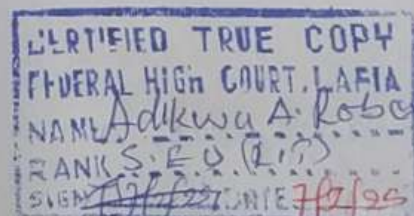 CERTIFIED TRUE COPY
FEDERAL HIGH COURT, LAFIA
NAME Adikwu A. Robo
RANK S.E.O (LIT)
SIGN DATE 7/7/25